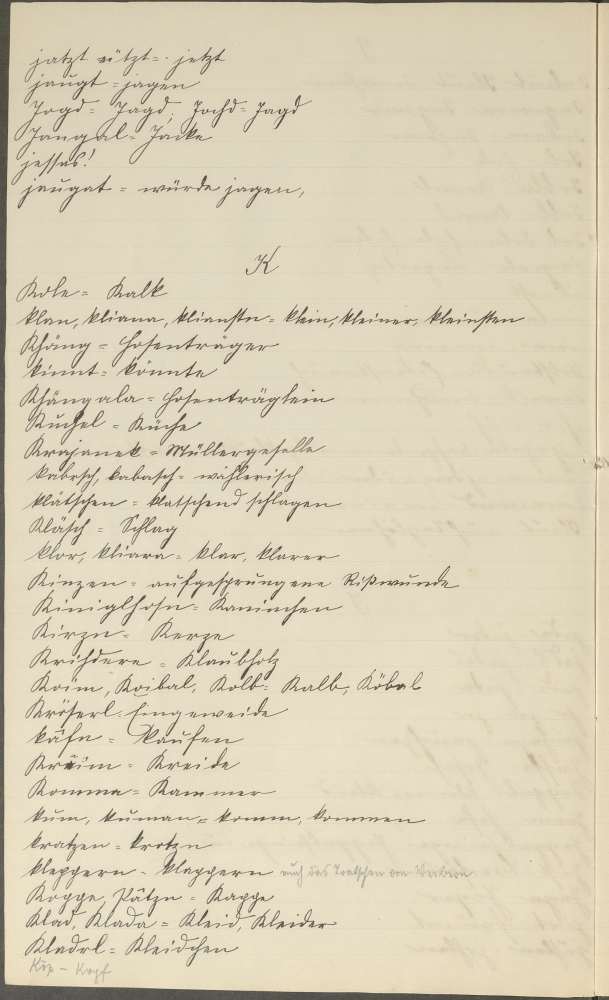 jatzt = jetzt
jaugt = jagen
Jogd = Jagd, Jochd = Jagd
Jangal = Jacke
jessas!
jaugat = würde jagen,
K
Kole = Kalk
klan, kliana, klianste = klein, kleiner, kleinsten
Khäng = Hosenträger
kinnt = könnte
Khängala = Hosenträglein
Kuchel = Küche
Krajanek = Müllergeselle
kabesch, kabasch = wählerisch
klätschen = klatschend schlagen
Kläsch = Schlag
klor, kliara = klar, klarer
Kinzen = aufgesprungene Rißwunde
Kiniglhosn = Kaninchen
Kirzn = Kerze
= Klaubholz
Koim, Koibal, Kolb = Kalb, Köbal
Kröserl = Eingeweide
käfn = kaufen
Kreim = Kreide
Komma = Kammer
kum, kuman = komm, kommen
kratzen = krotzn
kleppern = klappern auch das Tratschen von Weibern
Koppe, Pätzn = Kappe
Klad, Klada = Kleid, Kleider
Kladel = Kleidchen
Kop - Kopf